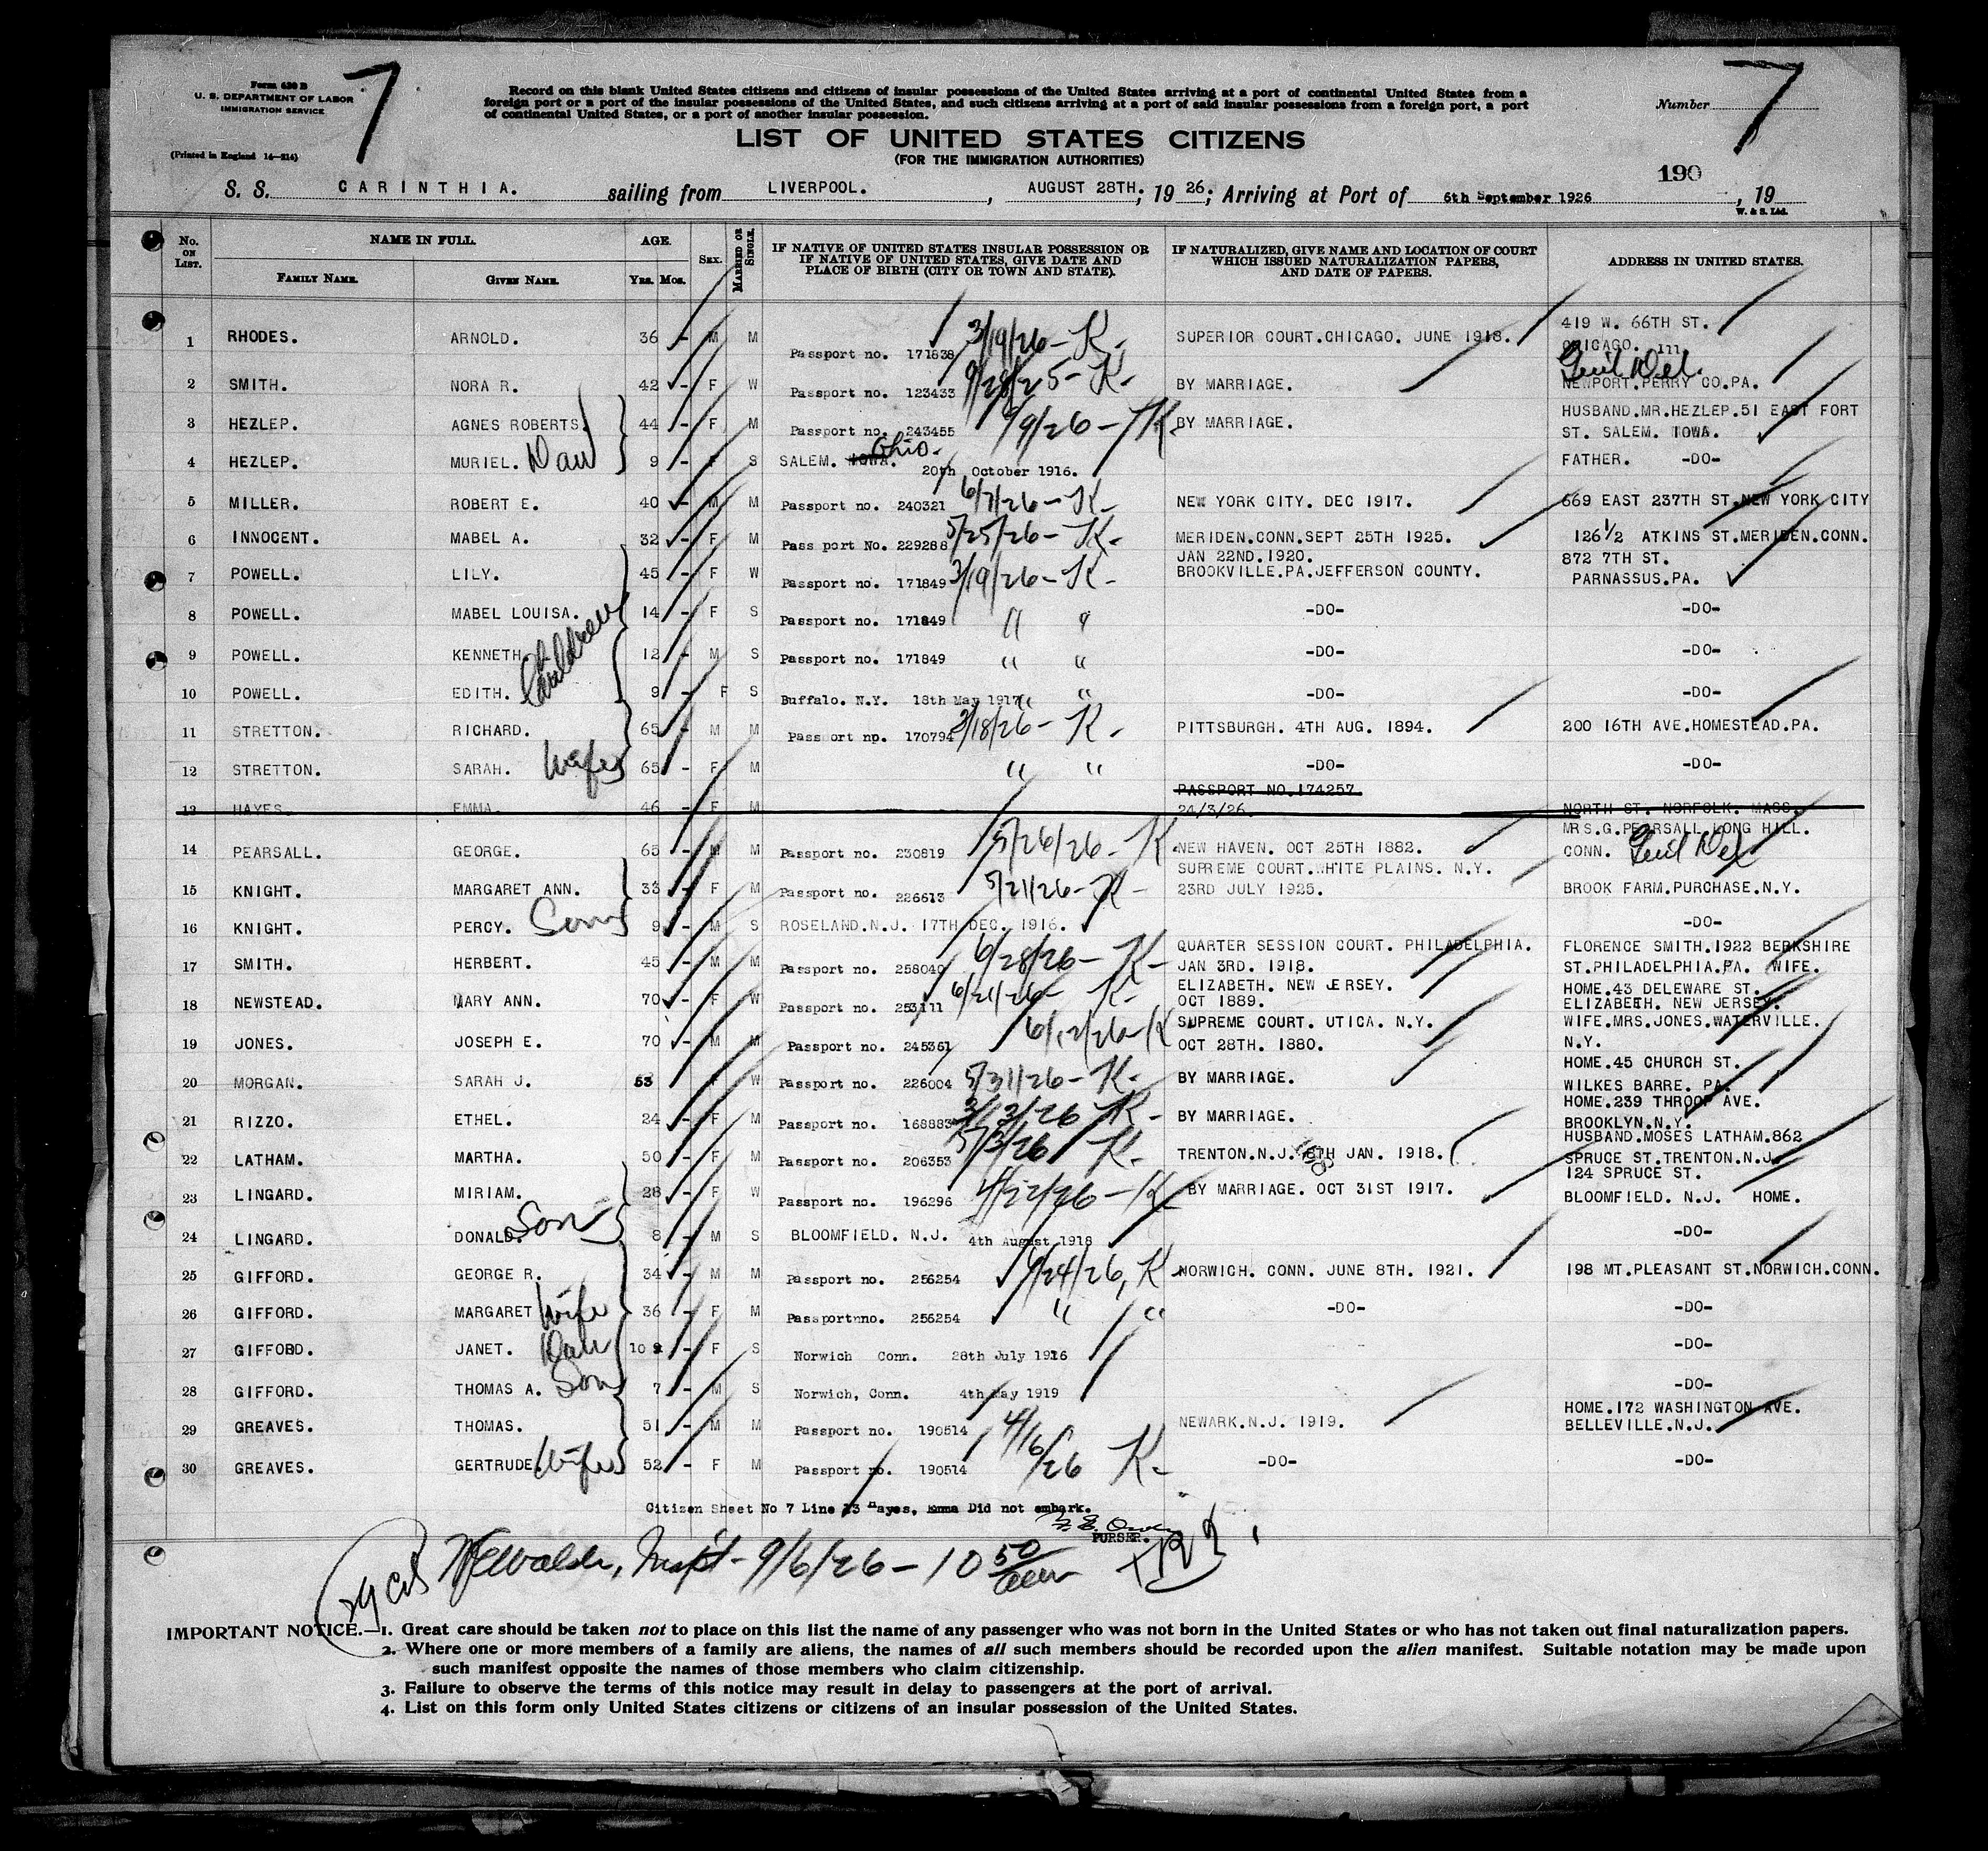 7
Form 630 B
U. S. DEPARTMENT OF LABOR
IMMIGRATION SERVICE
(Printed in England 14—214)
Record on this blank United States citizens and citizens of insular possessions of the United States arriving at a port of continental United States from a
foreign port or a port of the insular possessions of the United States, and such citizens arriving at a port of said insular possessions from a foreign port, a port
of continental United States, or a port of another insular possession.
Number 7
LIST OF UNITED STATES CITIZENS
(FOR THE IMMIGRATION AUTHORITIES)
190
S. S. CARINTHIA. sailing from LIVERPOOL. , AUGUST 28TH. ; 19 26. ; Arriving at Port of 6th September 1926 , 19
W. & S. Ltd.
No. ON LIST. NAME IN FULL. FAMILY NAME. GIVEN NAME. AGE. YRS. MOS. SEX. MARRIED OR SINGLE. IF NATIVE OF UNITED STATES INSULAR POSSESSION OR IF NATIVE OF UNITED STATES, GIVE DATE AND PLACE OF BIRTH (CITY OR TOWN AND STATE). IF NATURALIZED, GIVE NAME AND LOCATION OF COURT WHICH ISSUED NATURALIZATION PAPERS, AND DATE OF PAPERS. ADDRESS IN UNITED STATES.
1 RHODES. ARNOLD. 36 - M M Passport no. 171838 3/19/26 - K - SUPERIOR COURT.CHICAGO. JUNE 1918. 419 W. 66TH ST. CHICAGO. Ill
2 SMITH. NORA R. 42 - F W Passport no. 123433 9/28/25 - K - BY MARRIAGE. Genl Del. NEWPORT.PERRY CO.PA.
3 HEZLEP. AGNES ROBERTS. 44 - F M Passport no. 243455 6/9/26 - K BY MARRIAGE. HUSBAND.MR.HEZLEP.51 EAST FORT ST. SALEM. IOWA.
4 HEZLEP. MURIEL. Dau 9 - F S SALEM. IOWA. Ohio. 20th October 1916. FATHER. -DO-
5 MILLER. ROBERT E. 40 - M M Passport no. 240321 6/7/26 - K NEW YORK CITY. DEC 1917. 669 EAST 237TH ST.NEW YORK CITY
6 INNOCENT. MABEL A. 32 - F M Pass port No. 229288 5/25/26 - K - MERIDEN.CONN.SEPT 25TH 1925. 126½ ATKINS ST.MERIDEN.CONN.
7 POWELL. LILY. 45 - F W Passport no. 171849 3/19/26 - K - JAN 22ND.1920. BROOKVILLE.PA.JEFFERSON COUNTY. 872 7TH ST. PARNASSUS.PA.
8 POWELL. MABEL LOUISA. Children 14 - F S Passport no. 171849 " " -DO- -DO-
9 POWELL. KENNETH. 12 - M S Passport no. 171849 " " -DO- -DO-
10 POWELL. EDITH. 9 - F S Buffalo. N.Y. 18th May 1917 " " -DO- -DO-
11 STRETTON. RICHARD. 65 - M M Passport np. 170794 3/18/26 - K - PITTSBURGH. 4TH AUG. 1894. 200 16TH AVE.HOMESTEAD.PA.
12 STRETTON. SARAH. Wife 65 - F M " " -DO- -DO-
13 HAYES. EMMA. 46 - F M PASSPORT NO.174257 24/3/26. NORTH ST. NORFOLK. MASS.
14 PEARSALL. GEORGE. 65 - M M Passport no. 230819 5/26/26 - K NEW HAVEN. OCT 25TH 1882. MRS.G.PEARSALL LONG HILL. CONN. Genl Del
15 KNIGHT. MARGARET ANN. 33 - F M Passport no. 226613 5/21/26 - K - SUPREME COURT.WHITE PLAINS. N.Y. 23RD JULY 1925. BROOK FARM.PURCHASE.N.Y.
16 KNIGHT. PERCY. Son 9 - M S ROSELAND.N.J. 17TH DEC. 1916. -DO-
17 SMITH. HERBERT. 45 - M M Passport no. 258040 6/28/26 - K - QUARTER SESSION COURT. PHILADELPHIA. JAN 3RD. 1918. FLORENCE SMITH.1922 BERKSHIRE ST.PHILADELPHIA.PA. WIFE.
18 NEWSTEAD. MARY ANN. 70 - F W Passport no. 253111 6/21/26 - K - ELIZABETH. NEW JERSEY. OCT 1889. HOME.43 DELEWARE ST. ELIZABETH. NEW JERSEY.
19 JONES. JOSEPH E. 70 - M M Passport no. 245361 6/12/26 - K SUPREME COURT. UTICA. N.Y. OCT 28TH. 1880. WIFE.MRS.JONES.WATERVILLE. N.Y.
20 MORGAN. SARAH J. 53 F W Passport no. 226004 5/31/26 - K - BY MARRIAGE. HOME.45 CHURCH ST. WILKES BARRE. PA.
21 RIZZO. ETHEL. 24 - F M Passport no. 168883 3/13/26 K - BY MARRIAGE. HOME.239 THROOP AVE. BROOKLYN.N.Y.
22 LATHAM. MARTHA. 50 - F M Passport no. 206353 5/3/26 K - TRENTON.N.J. 8TH JAN. 1918. HUSBAND.MOSES LATHAM.862 SPRUCE ST.TRENTON.N.J.
23 LINGARD. MIRIAM. 28 - F W Passport no. 196296 4/22/26 - K BY MARRIAGE. OCT 31ST 1917. 124 SPRUCE ST. BLOOMFIELD. N.J. HOME.
24 LINGARD. DONALD. Son 8 - M S BLOOMFIELD. N.J. 4th August 1918 -DO-
25 GIFFORD. GEORGE R. 34 - M M Passport no. 256254 6/24/26, K NORWICH. CONN. JUNE 8TH. 1921. 198 MT.PLEASANT ST.NORWICH.CONN.
26 GIFFORD. MARGARET Wife 36 - F M Passportnno. 256254 " " -DO- -DO-
27 GIFFORD. JANET. Dau 10 - F S Norwich Conn. 28th July 1916 -DO-
28 GIFFORD. THOMAS A. Son 7 - M S Norwich, Conn. 4th May 1919 -DO-
29 GREAVES. THOMAS. 51 - M M Passport no. 190514 4/16/26 K - NEWARK.N.J. 1919. HOME.172 WASHINGTON AVE. BELLEVILLE.N.J.
30 GREAVES. GERTRUDE. Wife 52 - F M Passport no. 190514 -DO- -DO-
Citizen Sheet No 7 Line 13 Hayes, Emma Did not embark.
PURSER.
29 cit Inspt - 9/6/26 - 10 50
IMPORTANT NOTICE.—1. Great care should be taken not to place on this list the name of any passenger who was not born in the United States or who has not taken out final naturalization papers.
2. Where one or more members of a family are aliens, the names of all such members should be recorded upon the alien manifest. Suitable notation may be made upon
such manifest opposite the names of those members who claim citizenship.
3. Failure to observe the terms of this notice may result in delay to passengers at the port of arrival.
4. List on this form only United States citizens or citizens of an insular possession of the United States.